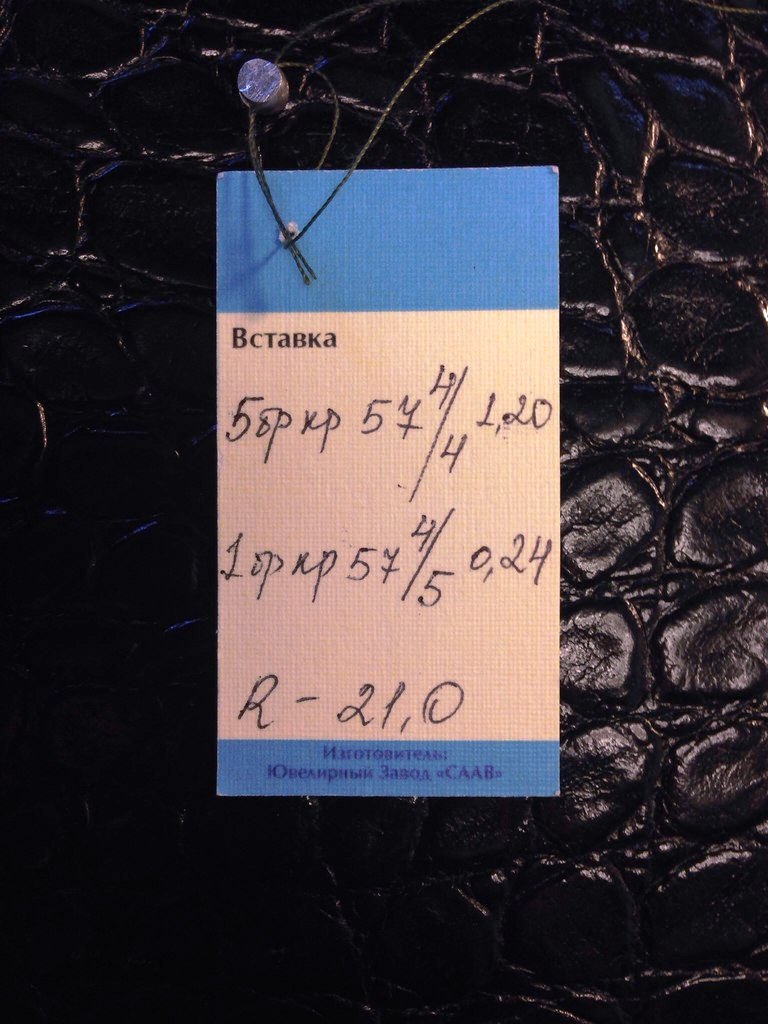 Вставка
5 бр кр 57 4/4 1,20
1 бр кр 57 4/5 0,24
R - 21,0
Изготовитель:
Ювелирный Завод «СААВ»